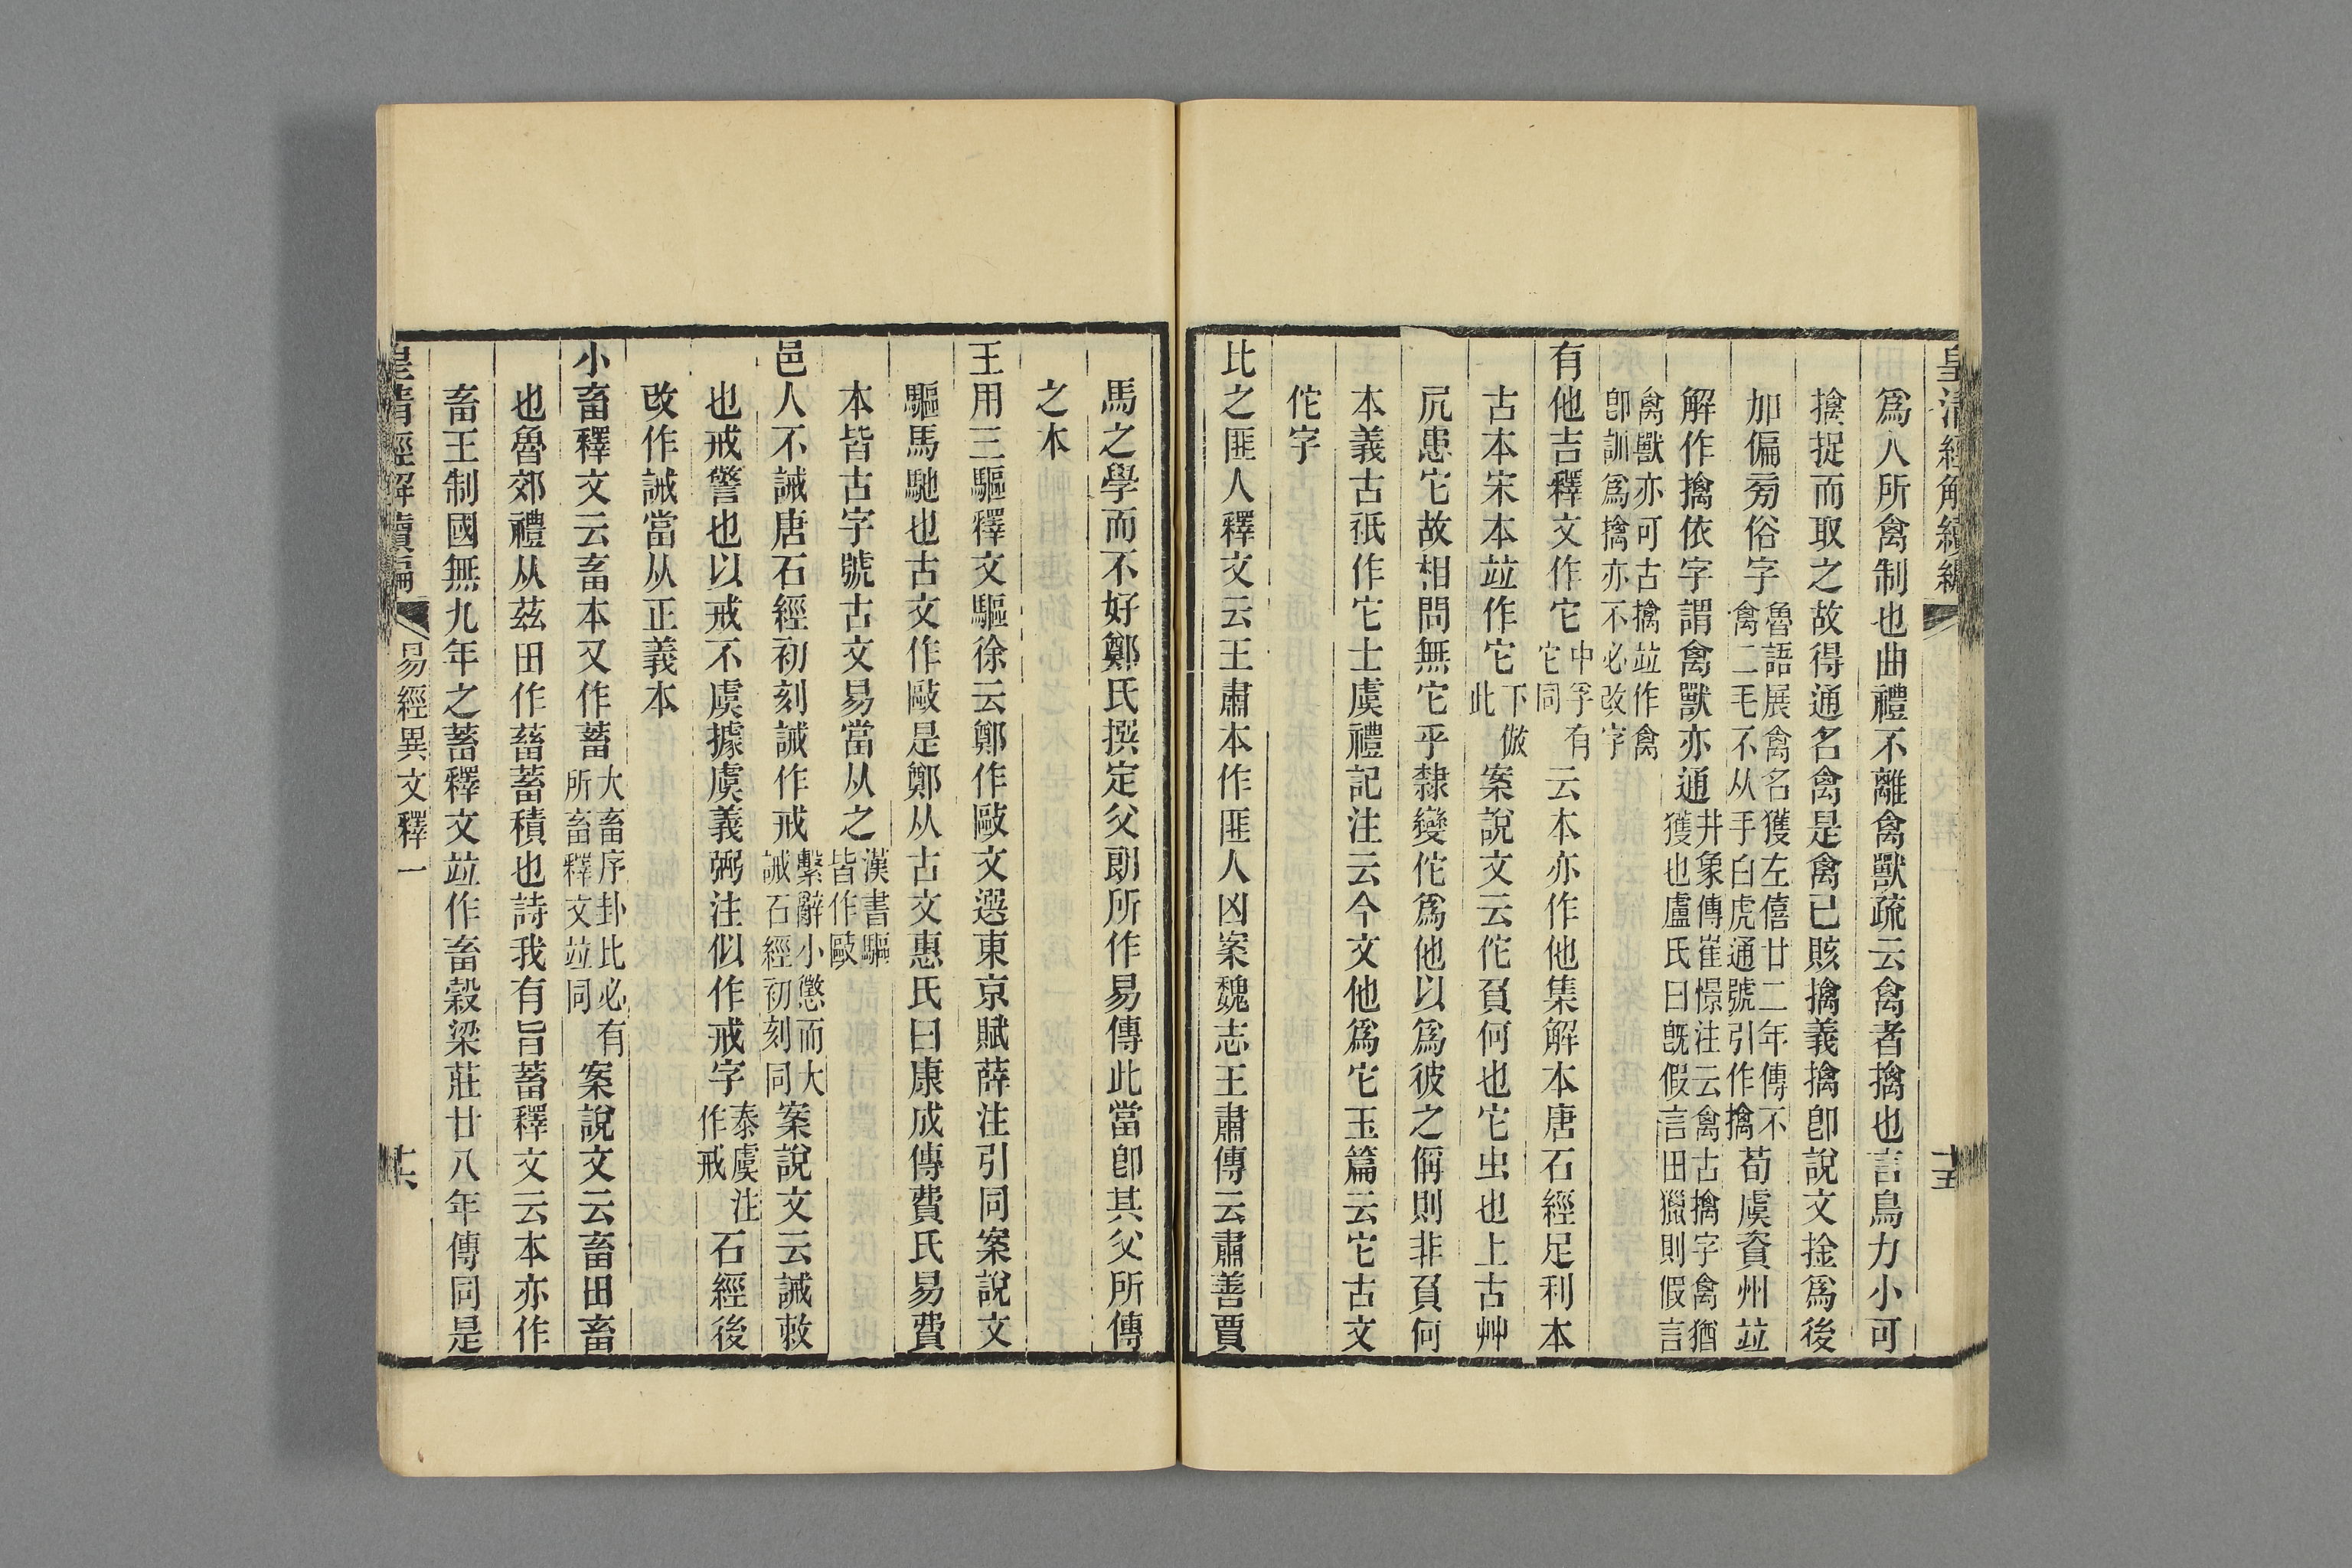 皇清經解續編
十五
爲人所禽制也曲禮不離禽獸疏云禽者擒也言鳥力小可
擒捉而取之故得通名禽是禽已賅擒義擒卽說文捦爲後
加偏㫄俗字魯語展禽名獲左僖廿二年傳不禽二毛不从手白虎通號引作擒荀虞資州竝
解作擒依字謂禽獸亦通井象傳崔憬注云禽古擒字禽猶獲也盧氏曰旣假言田獵則假言
禽獸亦可古擒竝作禽卽訓爲擒亦不必改字
有他吉釋文作它中孚有它同云本亦作他集解本唐石經足利本
古本宋本竝作它下倣此案說文云佗負何也它虫也上古艸
凥患它故相問無它乎隸變佗爲他以爲彼之偁則非負何
本義古祇作它士虞禮記注云今文他爲它玉篇云它古文
佗字
比之匪人釋文云王肅本作匪人凶案魏志王肅傳云肅善賈
馬之學而不好鄭氏撰定父朗所作易傳此當卽其父所傳
之本
王用三驅釋文驅徐云鄭作敺文選東京賦薛注引同案說文
驅馬馳也古文作敺是鄭从古文惠氏曰康成傳費氏易費
本皆古字號古文易當从之漢書驅皆作敺
邑人不誡唐石經初刻誡作戒繫辭小懲而大誡石經初刻同案說文云誡敕
也戒警也以戒不虞據虞義弼注似作戒字泰虞注作戒石經後
改作誡當从正義本
小畜釋文云畜本又作蓄大畜序卦比必有所畜釋文竝同案說文云畜田畜
也魯郊禮从茲田作蓄蓄積也詩我有旨蓄釋文云本亦作
畜王制國無九年之蓄釋文竝作畜穀梁莊廿八年傳同是
皇清經解續編
易經異文釋一
十六